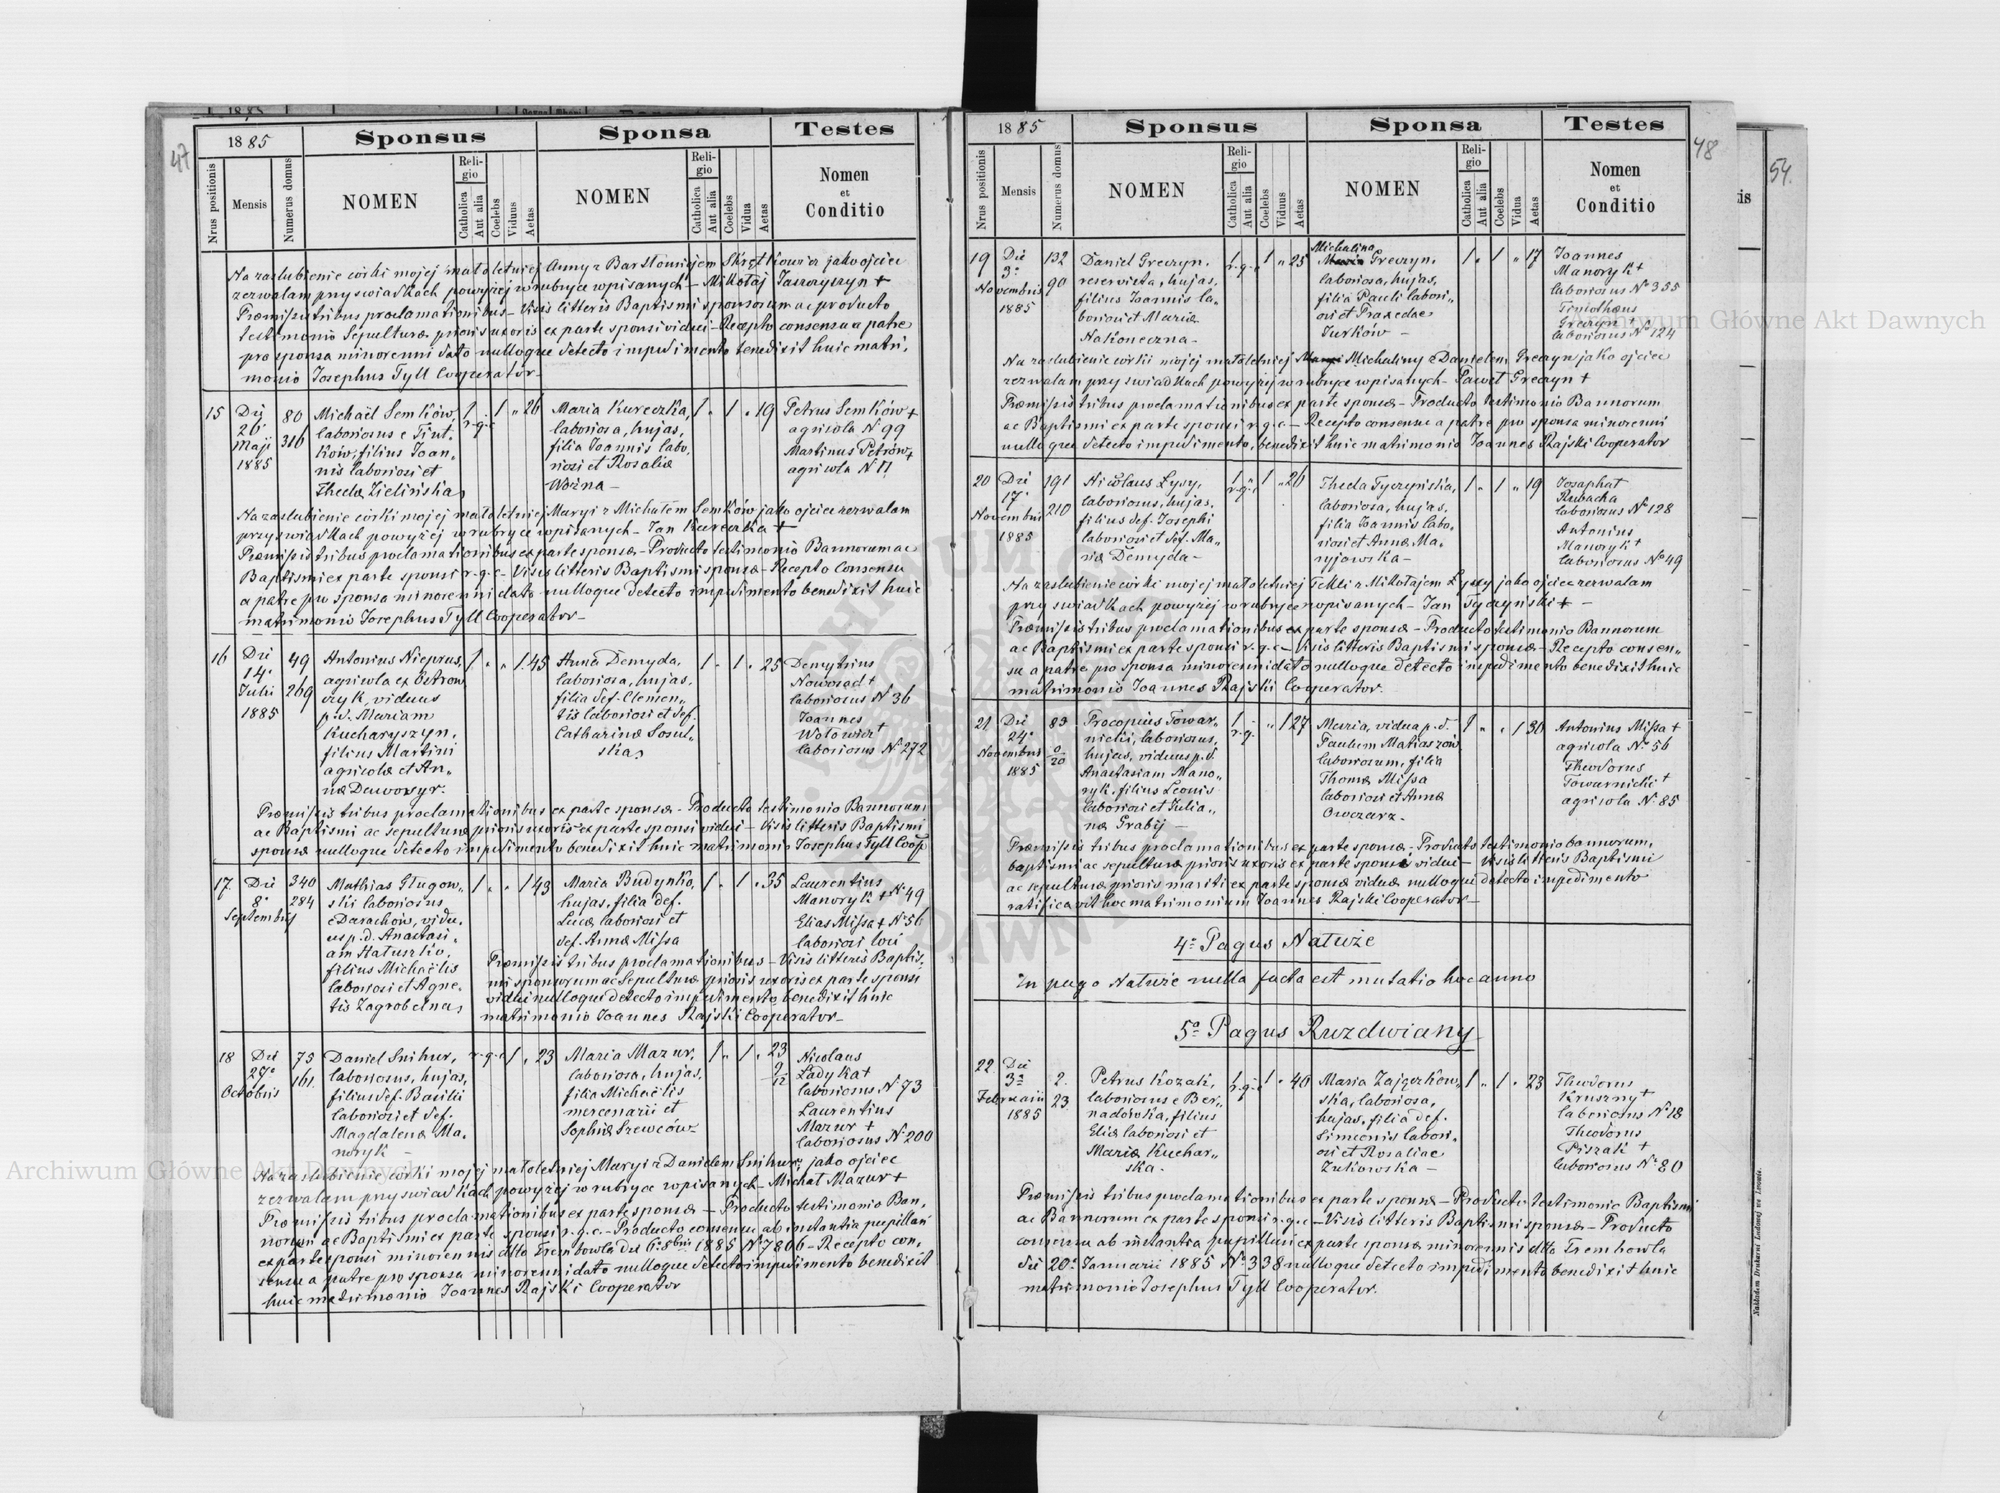 47
1885
Sponsus
Sponsa
Testes
Nrus positionis
Mensis
Numerus domus
NOMEN
Religio
Catholica
Aut alia
Coelebs
Viduus
Aetas
NOMEN
Religio
Catholica
Aut alia
Coelebs
Vidua
Aetas
Nomen
et
Conditio
Na zaslubienie córki mojej małoletniej Anny z Bartłomiejem Skrętkowicz jako ojciec
zezwalam przy swiadkach powyżej w rubryce wpisanych - Mikołaj +
Præmissis tribus proclamationibus - Visis litteris Baptismi sponsorum ac producto
testimonio Sepulturæ prioris uxoris ex parte sponsi vidui - Recepto consensu a patre
pro sponsa minorenni dato nulloque detecto impedimento benedixit huic matri-
monio Josephus Tyll Cooperator -
15 Die 26 Maji 1885 80 316
Michaël Semków,
laboriosus e Tiut-
ków, filius Joan-
nis laboriosi et
Theclæ Zielińska,
1 r.g.c. 1 " 26
Maria Kureczka,
laboriosa, hujas,
filia Joannis labo-
riosi et Rosaliæ
Woźna -
1 " 1 " 19
Petrus Semków +
agricola N 99
Martinus Petrów +
agricola N 17
Na zaslubienie córki mojej małoletniej Maryi z Michałem Semków jako ojciec zezwalam
przy swiadkach powyżej w rubryce wpisanych - Jan Kureczka +
Præmissis tribus proclamationibus ex parte sponsæ - Producto testimonio Bannorum ac
Baptismi ex parte sponsi r.g.c - Visis litteris Baptismi sponsæ - Recepto Consensu
a patre pro sponsa minorenni dato nulloque detecto impedimento benedixit huic
matrimonio Josephus Tyll Cooperator -
16 Die 14. Julii 1885 49 269
Antonius Nieprus,
agricola ex Ostrow
czyk, viduus
p.d. Mariam
Kucharyszyn,
filius Martini
agricolæ et An-
næ Deworsyr.
1 " " 1 45
Anna Demyda,
laboriosa, hujas,
filia def. Clemen-
tis laboriosi et def.
Catharinæ Sosul-
ska,
1 " 1 " 25
Demytrius
Noworad +
laboriosus N 36
Joannes
Wołowicz +
laboriosus N 272
Præmissis tribus proclamationibus ex parte sponsæ - Producto testimonio Bannorum
ac Baptismi ac sepulturæ prioris uxoris ex parte sponsi vidui - Visis litteris Baptismi
sponsæ nulloque detecto impedimento benedixit huic matrimonio Josephus Tyll Coop
17 Die 8. Septembris 340 284
Mathias Glugow-
ski laboriosus
e Darachów, vidu-
us p.d. Anastasi-
am Haturko,
filius Michaëlis
laboriosi et Agne-
tis Zagrobelna,
1 " " 1 43
Maria Budynko,
hujas, filia def.
Lucæ laboriosi et
def. Annæ Missa
1 " 1 " 35
Laurentius
Manoryk + N 49
Elias Missa + N 56
laboriosi loci
Præmissis tribus proclamationibus - Visis litteris Baptis-
mi sponsorum ac Sepulturæ prioris uxoris ex parte sponsi
vidui nulloque detecto impedimento benedixit huic
matrimonio Joannes Rajski Cooperator -
18 Die 27. Octobris 75 161.
Daniel Snihur,
laboriosus, hujas,
filius def. Basilii
laboriosi et def.
Magdalenæ Ma-
noryk -
r.g.c 1 " 23
Maria Mazur,
laboriosa, hujas,
filia Michaëlis
mercenarii et
Sophiæ Szewców
1 " 1 " 23 9/12
Nicolaus
Ladyka +
laboriosus N 73
Laurentius
Mazur +
laboriosus N 200
Na zaslubienie córki mojej małoletniej Maryi z Danielem Snihur, jako ojciec
zezwalam przy swiadkach powyżej w rubryce wpisanych - Michał Mazur +
Præmissis tribus proclamationibus ex parte sponsæ - Producto testimonio Ban-
norum ac Baptismi ex parte sponsi r.g.c. - Producto consensu ab instantia pupillari
ex parte sponsi minorennis dtto Trembowla die 6. 8bris 1885 N 7806 - Recepto con-
sensu a patre pro sponsa minorenni dato nulloque detecto impedimento benedixit
huic matrimonio Joannes Rajski Cooperator
48
1885
Sponsus
Sponsa
Testes
Nrus positionis
Mensis
Numerus domus
NOMEN
Religio
Catholica
Aut alia
Coelebs
Viduus
Aetas
NOMEN
Religio
Catholica
Aut alia
Coelebs
Vidua
Aetas
Nomen
et
Conditio
19 Die 3. Novembris 1885 132 90
Daniel Greczyn,
reservista, hujas,
filius Joannis la-
boriosi et Mariæ
Nakoneczna -
1 r.g.c. 1 " 25
Michalina
Greczyn,
laboriosa, hujas,
filia Pauli labori-
osi et Praxedae
Jurków -
1 " 1 " 17
Joannes
Manoryk +
laboriosus N 355
Timotheus
Greczyn +
laboriosus N 124
Na zaslubienie córki mojej małoletniej Michaliny z Danielem Greczyn jako ojciec
zezwalam przy swiadkach powyżej w rubryce wpisanych - Paweł Greczyn +
Præmissis tribus proclamationibus ex parte sponsæ - Producto testimonio Bannorum
ac Baptismi ex parte sponsi r.g.c - Recepto consensu a patre pro sponsa minorenni
nulloque detecto impedimento, benedixit huic matrimonio Joannes Rajski Cooperator
20 Die 17. Novembris 1885 191 210
Nicolaus Łysy,
laboriosus, hujas,
filius def. Josephi
laboriosi et def. Ma-
riæ Demyda -
1 r.g.c 1 " 26
Thecla Tyczyńska,
laboriosa, hujas,
filia Joannis labo-
riosi et Annæ Ma-
ryjowska -
1 " 1 " 19
Josaphat
Rubacha
laboriosus N 128
Antonius
Manoryk +
laboriosus No 49
Na zaslubienie córki mojej małoletniej Tekli z Mikołajem Łyszy jako ojciec zezwalam
przy swiadkach powyżej w rubryce wpisanych - Jan Tyczyński + -
Præmissis tribus proclamationibus ex parte sponsæ - Producto testimonio Bannorum
ac Baptismi ex parte sponsi r.g.c - Visis litteris Baptismi sponsæ - Recepto consen-
su a patre pro sponsa minorenni dato nulloque detecto impedimento benedixit huic
matrimonio Joannes Rajski Cooperator.
21 Die 24. Novembris 1885 83
Procopius Towar-
nicki, laboriosus,
hujas, viduus p.d.
Anastasiam Mano-
ryk, filius Leonis
laboriosi et Julia-
næ Grabij -
1 r.g. " 1 27
Maria, vidua p.d.
Paulum Matiaszów,
laboriosum, filia
Thomæ Missa
laboriosi et Annæ
Owczarz.
1 " " 1 30
Antonius Missa +
agricola No 56
Theodorus
Towarnicki +
agricola N 85
Præmissis tribus proclamationibus ex parte sponsæ - Producto testimonio bannorum,
baptismi ac sepulturæ prioris uxoris ex parte sponsi vidui - Visis litteris Baptismi
ac sepulturæ prioris mariti ex parte sponsæ viduæ nulloque detecto impedimento
ratificavit hoc matrimonium Joannes Rajski Cooperator -
4o Pagus Nałuże
In pago Nałuże nulla facta est mutatio hoc anno
5o Pagus Ruzdwiany
22 Die 3. Februarii 1885 2. 23.
Petrus Kozak,
laboriosus e Ber-
nadówka, filius
Eliæ laboriosi et
Mariæ Kuchar-
ska.
1 r.g.c 1 " 40
Maria Zajączkow-
ska, laboriosa,
hujas, filia def.
Simeonis labori-
osi et Rosaliae
Żukowska -
1 " 1 " 23
Theodorus
Kruszny +
laboriosus N 18
Theodorus
Piszak +
laboriosus No 80
Præmissis tribus proclamationibus ex parte sponsæ - Producto testimonio Baptismi
ac Bannorum ex parte sponsi r.g.c - Visis litteris Baptismi sponsæ - Producto
consensu ab instantia pupillari ex parte sponsæ minorennis dtto Trembowla
die 20. Januarii 1885 No 338 nulloque detecto impedimento benedixit huic
matrimonio Josephus Tyll Cooperator.
54.
Nakładem Drukarni Ludowej we Lwowie.
Archiwum Główne Akt Dawnych
Archiwum Główne Akt Dawnych